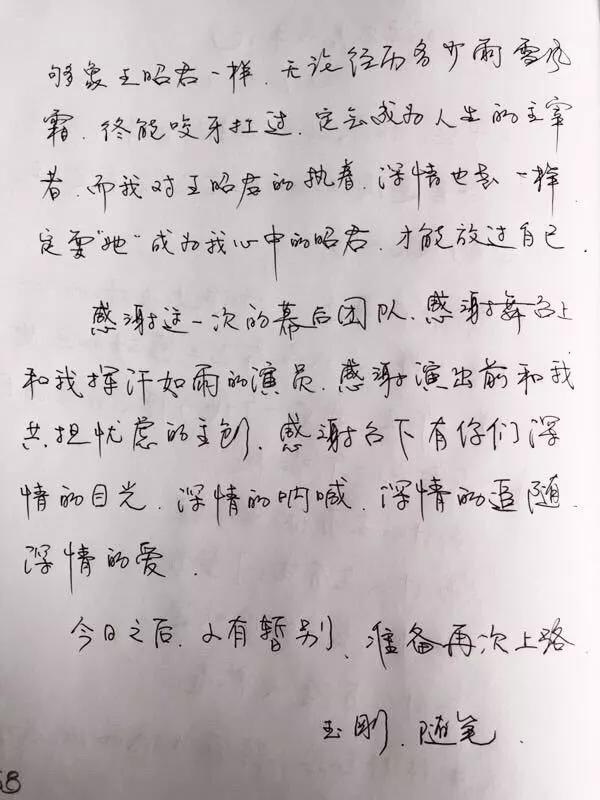 够象王昭君一样，无论经历多少雨雪风
霜，终能咬牙扛过，定会成为人生的主宰
者，而我对王昭君的执着，深情也是一样
定要“她”成为我心中的昭君，才能放过自己．
感谢这一次的幕后团队，感谢舞台上
和我挥汗如雨的演员，感谢演出前和我
共担忧虑的主创，感谢台下有你们深
情的目光，深情的呐喊，深情的追随，
深情的爱．
今日之后，又有暂别，准备再次上路
玉刚．随笔．
68